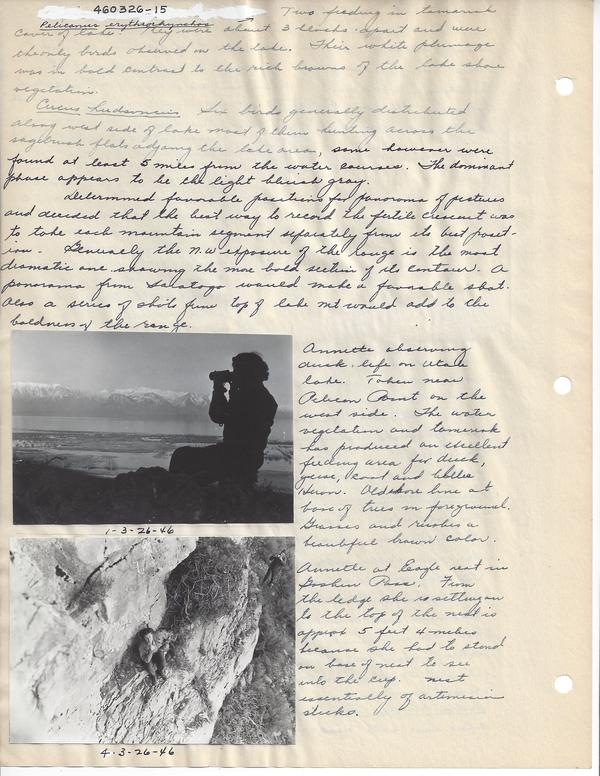 460326-15
Pelicanus erythrorhynchos Two feeding in tamarack
cover of lake. They were about 3 blocks apart and were
the only birds observed on the lake. Their white plumage
was in bold contrast to the rich browns of the lake shore
vegetation.
Circus hudsonius Six birds generally distributed
along west side of lake most of them hunting across the
sagebrush flats adjoing the lake area, some however were
found at least 5 miles from the water courses. The dominant
phase appears to be the light bluish gray.
Determined favorable positions for panorama of pictures
and decided that the best way to record the fertile crescent was
to take each mountain segment separately from its best posit-
ion. Generally the N.W exposure of the range is the most
dramatic one showing the more bold section of its contour. A
panorama from Saratoga would make a favorable shot.
Also a series of shots from top of lake mt would add to the
boldness of the range.
Annette observing
duck life on Utah
lake. Taken near
Pelican Point on the
west side. The water
vegetation and tamerak
has produced an excellent
feeding area for duck,
geese, coot and
Heron. Old shore line at
base of trees in foreground.
Grasses and rushes a
beautiful brown color.
1-3-26-46
Annette at Eagle nest in
Goshen Pass. From
the ledge she is setting on
to the top of the nest is
approx 5 feet 4 inches
because she had to stand
on base of nest to see
into the cup. nest
essentially of artemesia
sticks.
4-3-26-46